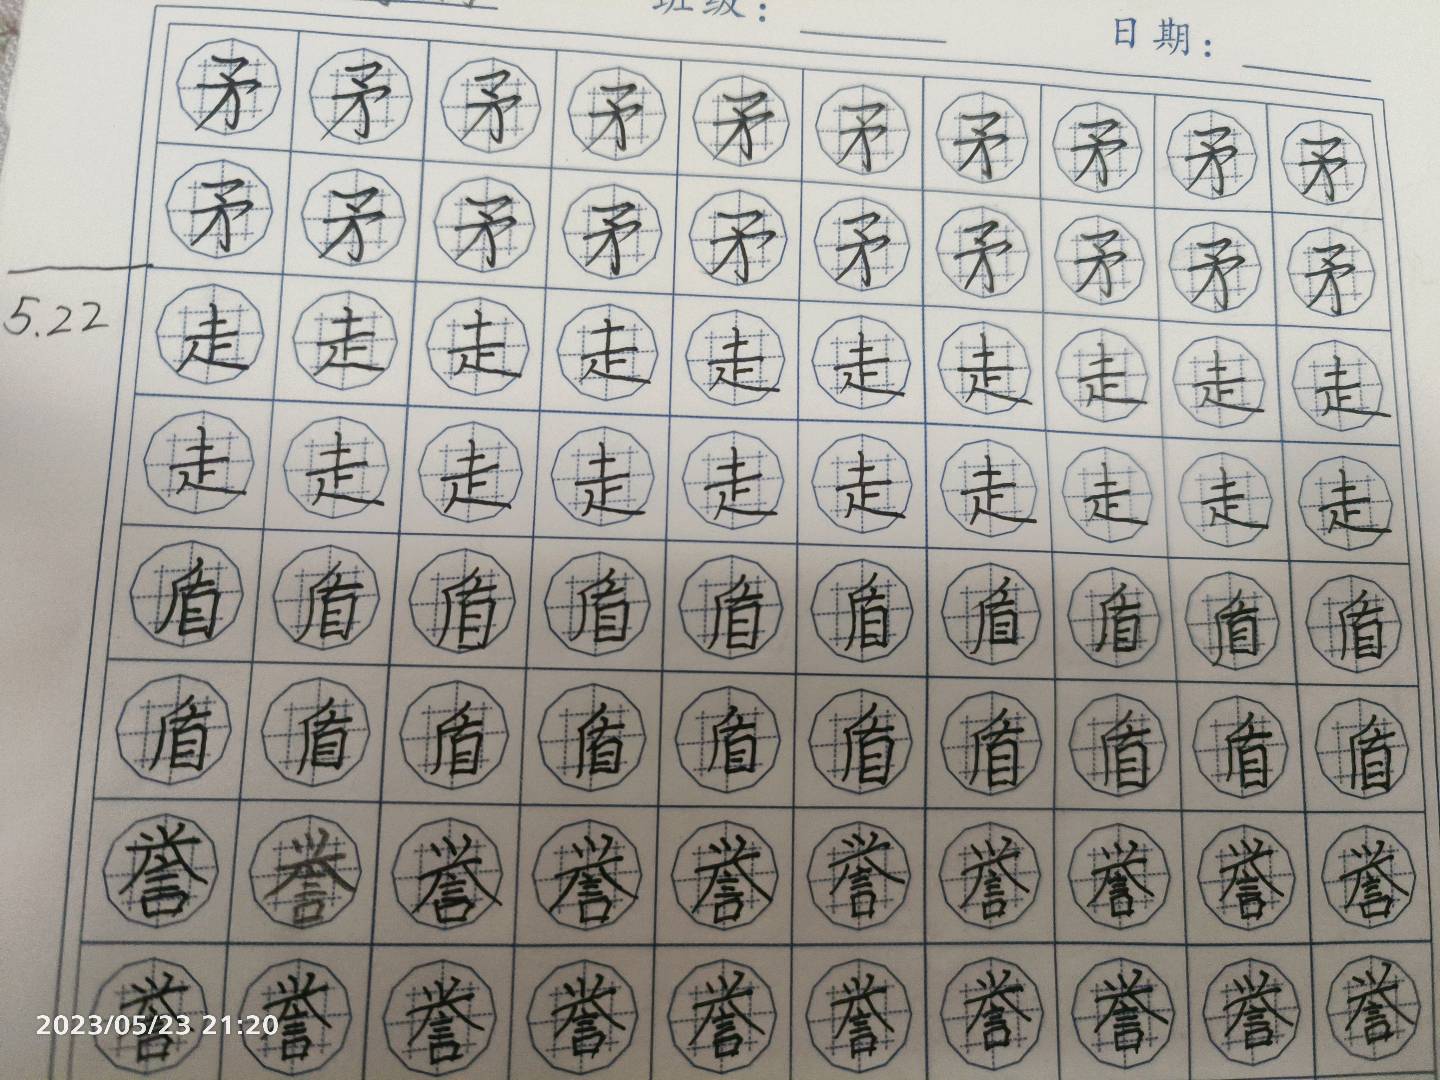 班级：
日期：
矛矛矛矛矛矛矛矛矛矛
矛矛矛矛矛矛矛矛矛矛
5.22
走走走走走走走走走走
走走走走走走走走走走
盾盾盾盾盾盾盾盾盾盾
盾盾盾盾盾盾盾盾盾盾
誉誉誉誉誉誉誉誉誉誉
誉誉誉誉誉誉誉誉誉誉
2023/05/23 21:20